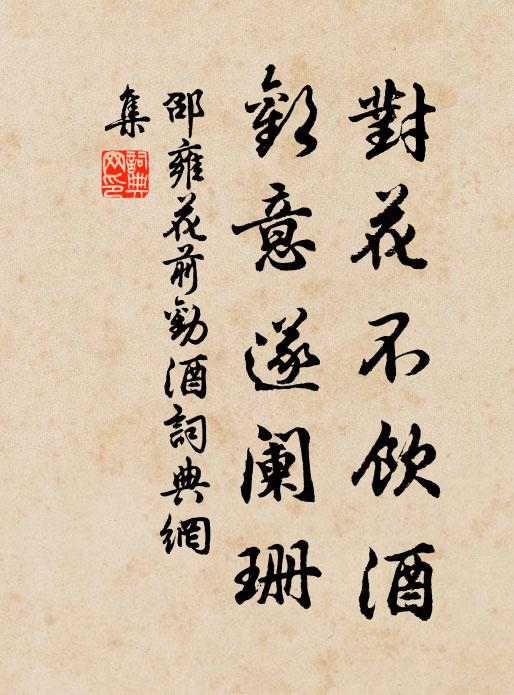 對花不飲酒
歡意遂阑珊
邵雍花前勸酒詞典網
集
詞典
网印